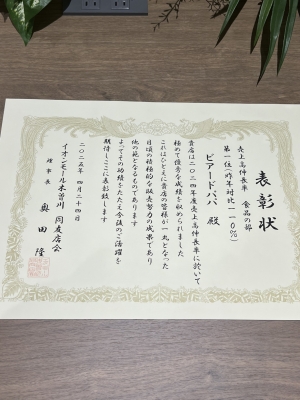 表彰状
売上高伸長率 食品の部
第一位(昨年対比一一〇%)
ビアードパパ 殿
貴店は二〇二四年度売上高伸長率に於いて
極めて優秀な成績を収められました
これはひとえに貴店の皆様が一丸となった
日頃の積極的な販売努力の成果であり
他の範となるものであります
よってその功績をたたえ今後のご活躍を
期待しここに表彰致します
二〇二五年 四月二十四日
イオンモール木曽川 同友店会
理事長 奥田 隆